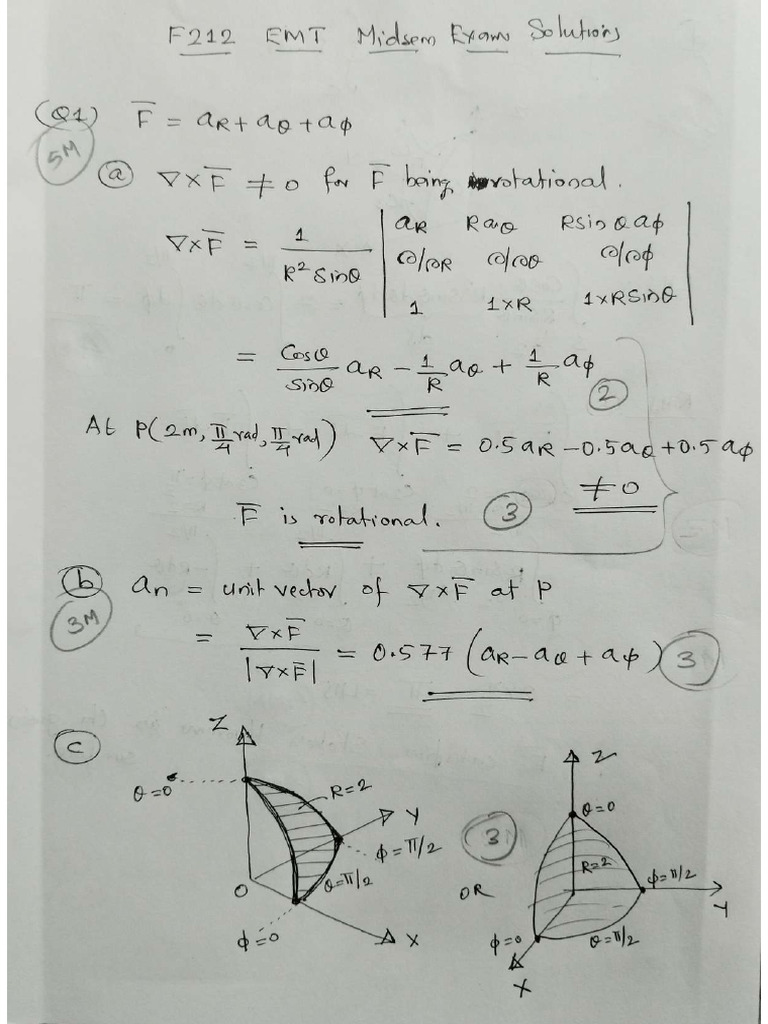 F212 EMT Midsem Exam Solutions
(Q1) F̅ = aR + aθ + aϕ
5M
(a) ∇×F̅ ≠ 0 for F̅ being rotational.
∇×F̅ = 1/(R² Sinθ) | aR Raθ RSinθaϕ |
| ∂/∂R ∂/∂θ ∂/∂ϕ |
| 1 1×R 1×RSinθ |
= Cosθ/Sinθ aR − 1/R aθ + 1/R aϕ
(2)
At P(2m, π/4 rad, π/4 rad) ∇×F̅ = 0.5aR − 0.5aθ + 0.5aϕ
≠ 0
F̅ is rotational. (3)
(b) an = unit vector of ∇×F̅ at P
3M
= ∇×F̅/|∇×F̅| = 0.577 (aR − aθ + aϕ) (3)
(c)
Z
θ=0
R=2
Y
ϕ=π/2
θ=π/2
O
ϕ=0
X
(3)
OR
Z
θ=0
R=2
ϕ=π/2
Y
ϕ=0
θ=π/2
X